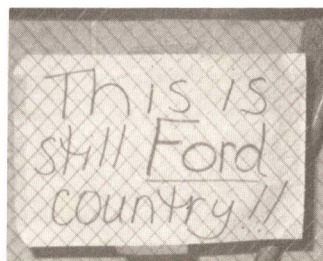 This is
still Ford
country!!